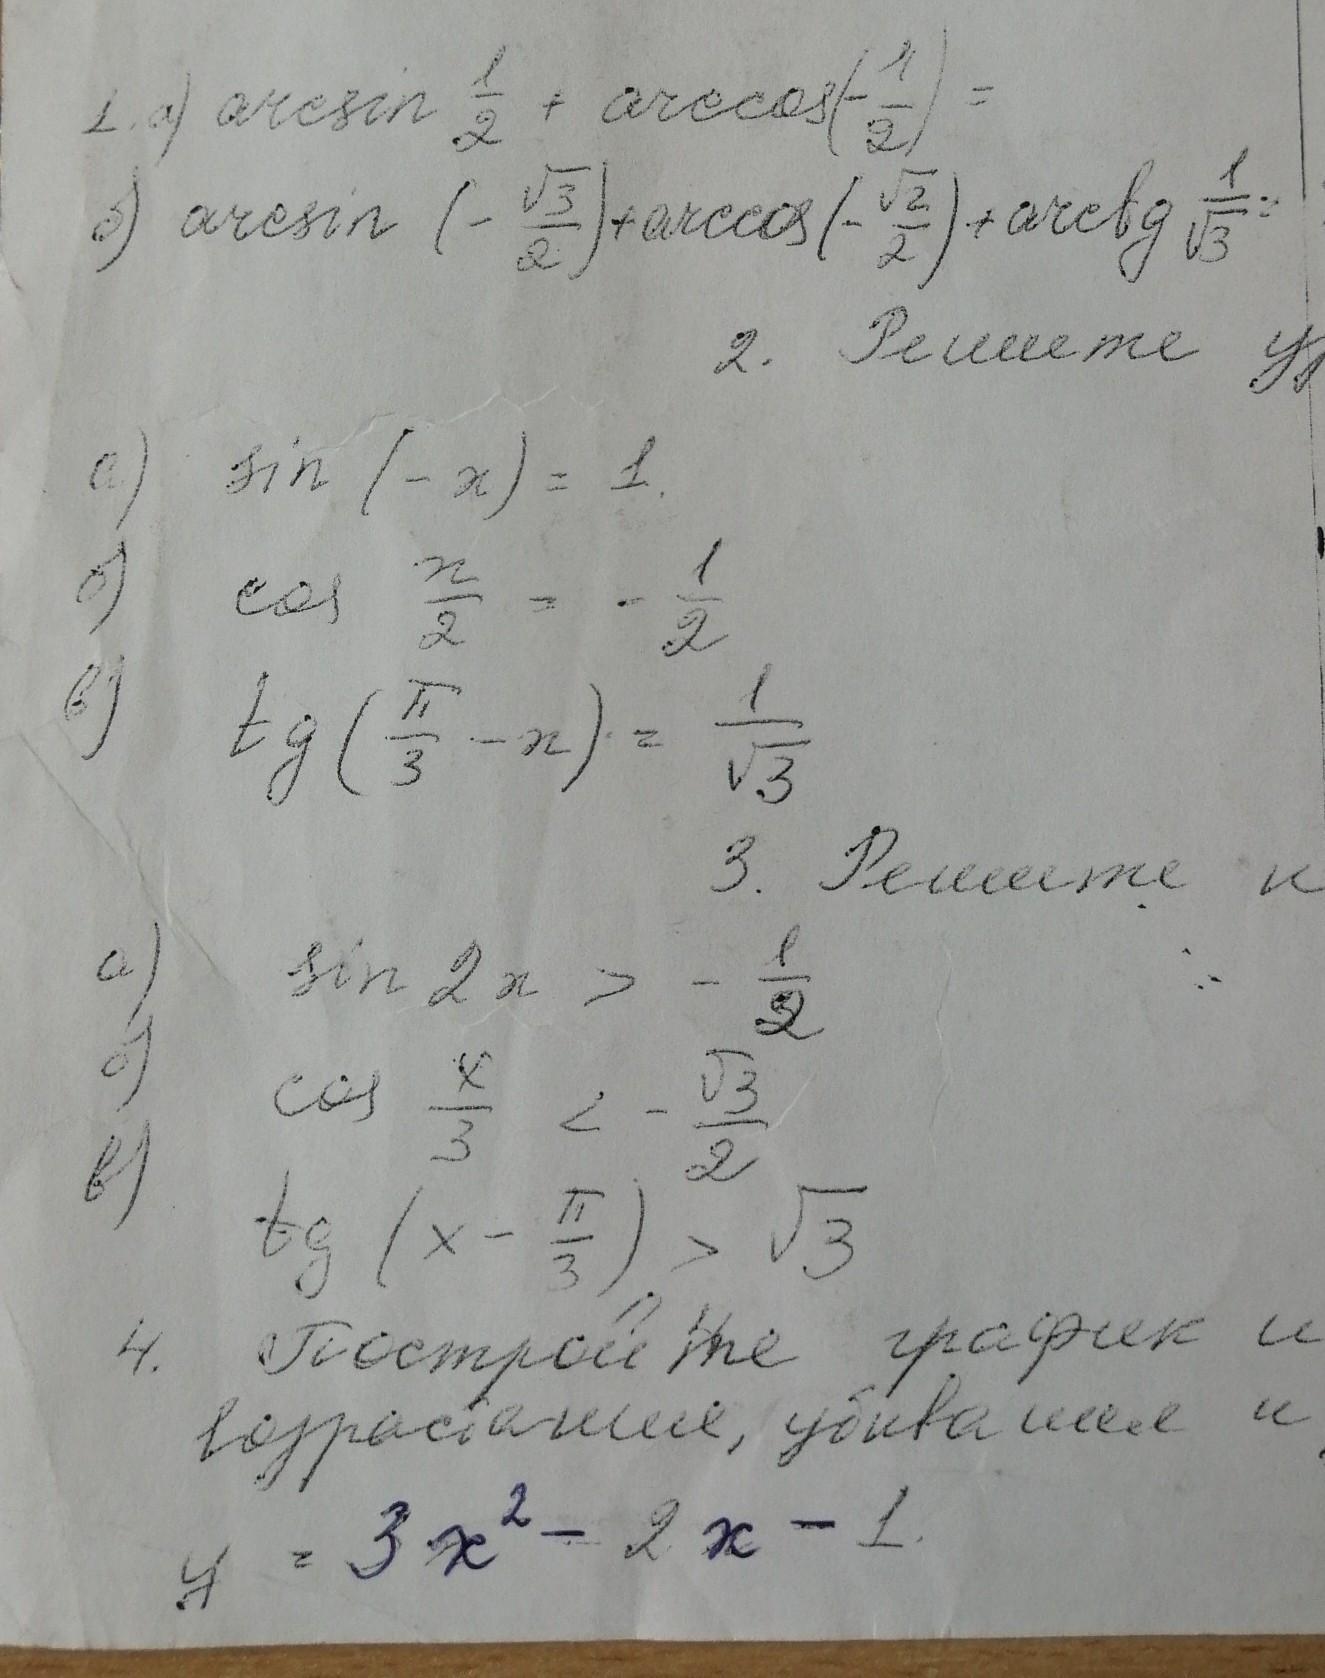 1. а) arcsin 1/2 + arccos(-1/2) =
б) arcsin (- √3/2) + arccos (- √2/2) + arctg 1/√3 =
2. Решите ур
а) sin (-x) = 1.
б) cos x/2 = - 1/2
в) tg (π/3 - x) = 1/√3
3. Решите н
а) sin 2x > - 1/2
б) cos x/3 < - √3/2
в) tg (x - π/3) > √3
4. Постройте график и
возрастание, убывание и
y = 3x² - 2x - 1.